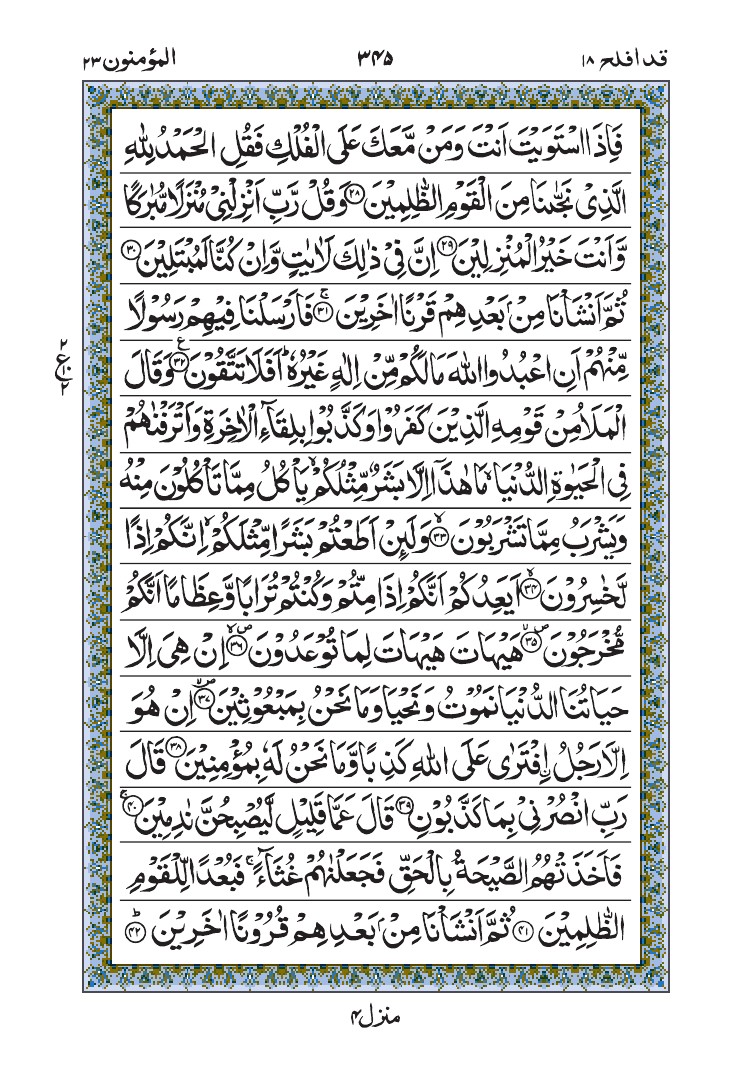 قد افلح ۱۸
۳۴۵
المؤمنون ۲۳
فَاِذَا اسْتَوَيْتَ اَنْتَ وَمَنْ مَّعَكَ عَلَى الْفُلْكِ فَقُلِ الْحَمْدُ لِلّٰهِ
الَّذِیْ نَجّٰىنَا مِنَ الْقَوْمِ الظّٰلِمِيْنَ ﴿۲۸﴾ وَقُلْ رَّبِّ اَنْزِلْنِیْ مُنْزَلًا مُّبٰرَكًا
وَّاَنْتَ خَيْرُ الْمُنْزِلِيْنَ ﴿۲۹﴾ اِنَّ فِیْ ذٰلِكَ لَاٰيٰتٍ وَّاِنْ كُنَّا لَمُبْتَلِيْنَ ﴿۳۰﴾
ثُمَّ اَنْشَاْنَا مِنْۢ بَعْدِهِمْ قَرْنًا اٰخَرِيْنَ ۚ﴿۳۱﴾ فَاَرْسَلْنَا فِيْهِمْ رَسُوْلًا
مِّنْهُمْ اَنِ اعْبُدُوا اللّٰهَ مَا لَكُمْ مِّنْ اِلٰهٍ غَيْرُهٗ ؕ اَفَلَا تَتَّقُوْنَ ﴿۳۲﴾ وَقَالَ
الْمَلَاُ مِنْ قَوْمِهِ الَّذِيْنَ كَفَرُوْا وَكَذَّبُوْا بِلِقَآءِ الْاٰخِرَةِ وَاَتْرَفْنٰهُمْ
فِی الْحَيٰوةِ الدُّنْيَا ۙ مَا هٰذَاۤ اِلَّا بَشَرٌ مِّثْلُكُمْ ۙ يَاْكُلُ مِمَّا تَاْكُلُوْنَ مِنْهُ
وَيَشْرَبُ مِمَّا تَشْرَبُوْنَ ۙ﴿۳۳﴾ وَلَئِنْ اَطَعْتُمْ بَشَرًا مِّثْلَكُمْ ۙ اِنَّكُمْ اِذًا
لَّخٰسِرُوْنَ ۙ﴿۳۴﴾ اَيَعِدُكُمْ اَنَّكُمْ اِذَا مِتُّمْ وَكُنْتُمْ تُرَابًا وَّعِظَامًا اَنَّكُمْ
مُّخْرَجُوْنَ ۪ۙ﴿۳۵﴾ هَيْهَاتَ هَيْهَاتَ لِمَا تُوْعَدُوْنَ ۪ۙ﴿۳۶﴾ اِنْ هِیَ اِلَّا
حَيَاتُنَا الدُّنْيَا نَمُوْتُ وَنَحْيَا وَمَا نَحْنُ بِمَبْعُوْثِيْنَ ۪ۙ﴿۳۷﴾ اِنْ هُوَ
اِلَّا رَجُلُ اِۨفْتَرٰی عَلَی اللّٰهِ كَذِبًا وَّمَا نَحْنُ لَهٗ بِمُؤْمِنِيْنَ ﴿۳۸﴾ قَالَ
رَبِّ انْصُرْنِیْ بِمَا كَذَّبُوْنِ ﴿۳۹﴾ قَالَ عَمَّا قَلِيْلٍ لَّيُصْبِحُنَّ نٰدِمِيْنَ ۚ﴿۴۰﴾
فَاَخَذَتْهُمُ الصَّيْحَةُ بِالْحَقِّ فَجَعَلْنٰهُمْ غُثَآءً ۚ فَبُعْدًا لِّلْقَوْمِ
الظّٰلِمِيْنَ ﴿۴۱﴾ ثُمَّ اَنْشَاْنَا مِنْۢ بَعْدِهِمْ قُرُوْنًا اٰخَرِيْنَ ؕ﴿۴۲﴾
منزل ۴